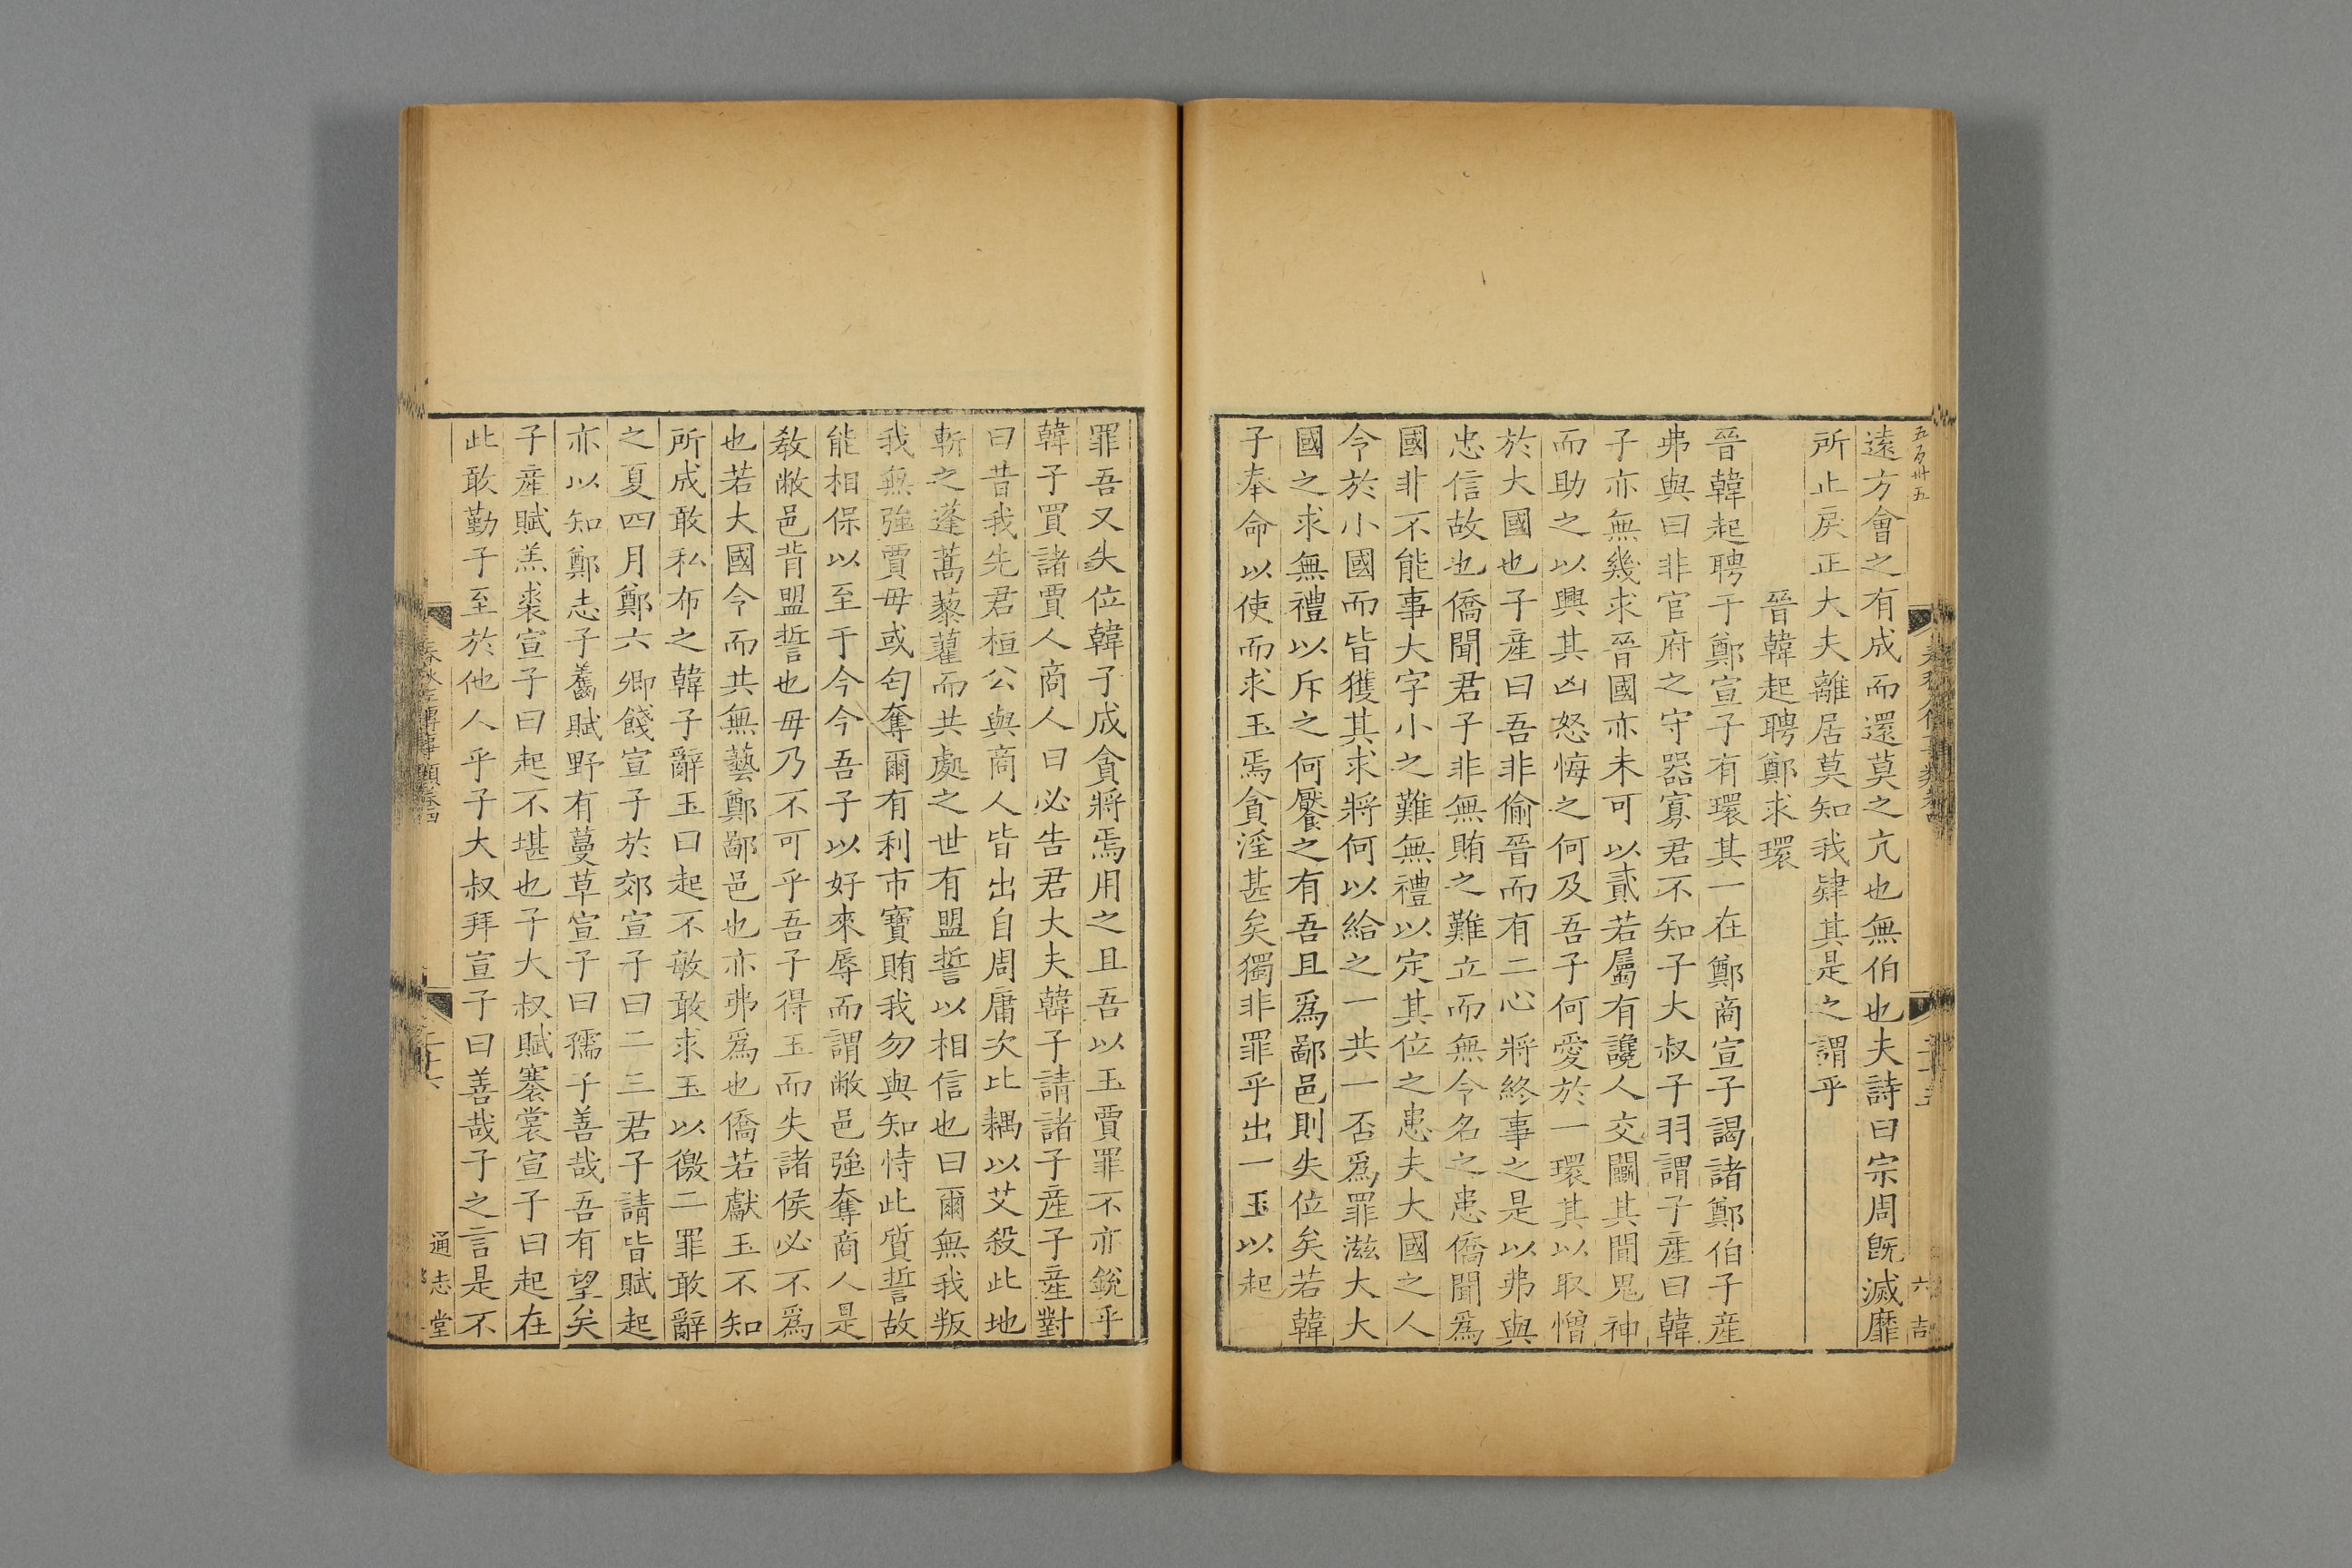 五百卅五
遠方會之有成而還莫之亢也無伯也夫詩曰宗周旣滅靡
所止戾正大夫離居莫知我肄其是之謂乎
晉韓起聘鄭求環
晉韓起聘于鄭宣子有環其一在鄭商宣子謁諸鄭伯子産
弗與曰非官府之守器寡君不知子大叔子羽謂子産曰韓
子亦無幾求晉國亦未可以貳若屬有讒人交鬭其間鬼神
而助之以興其凶怒悔之何及吾子何愛於一環其以取憎
於大國也子産曰吾非偷晉而有二心將終事之是以弗與
忠信故也僑聞君子非無賄之難立而無令名之患僑聞爲
國非不能事大字小之難無禮以定其位之患夫大國之人
令於小國而皆獲其求將何以給之一共一否爲罪滋大大
國之求無禮以斥之何饜之有吾且爲鄙邑則失位矣若韓
子奉命以使而求玉焉貪淫甚矣獨非罪乎出一玉以起
六吉
罪吾又失位韓子成貪將焉用之且吾以玉賈罪不亦銳乎
韓子買諸賈人商人曰必告君大夫韓子請諸子産子産對
曰昔我先君桓公與商人皆出自周庸次比耦以艾殺此地
斬之蓬蒿藜藋而共處之世有盟誓以相信也曰爾無我叛
我無強賈毋或匄奪爾有利市寶賄我勿與知恃此質誓故
能相保以至于今今吾子以好來辱而謂敝邑強奪商人是
敎敝邑背盟誓也毋乃不可乎吾子得玉而失諸侯必不爲
也若大國令而共無藝鄭鄙邑也亦弗爲也僑若獻玉不知
所成敢私布之韓子辭玉曰起不敏敢求玉以徼二罪敢辭
之夏四月鄭六卿餞宣子於郊宣子曰二三君子請皆賦起
亦以知鄭志子齹賦野有蔓草宣子曰孺子善哉吾有望矣
子産賦羔裘宣子曰起不堪也子大叔賦褰裳宣子曰起在
此敢勤子至於他人乎子大叔拜宣子曰善哉子之言是不
通志堂